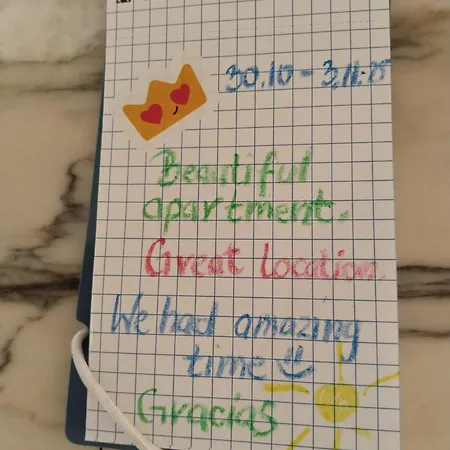 30.10 - 3.11.25
Beautiful
apartment.
Great location
We had amazing
time
Gracias